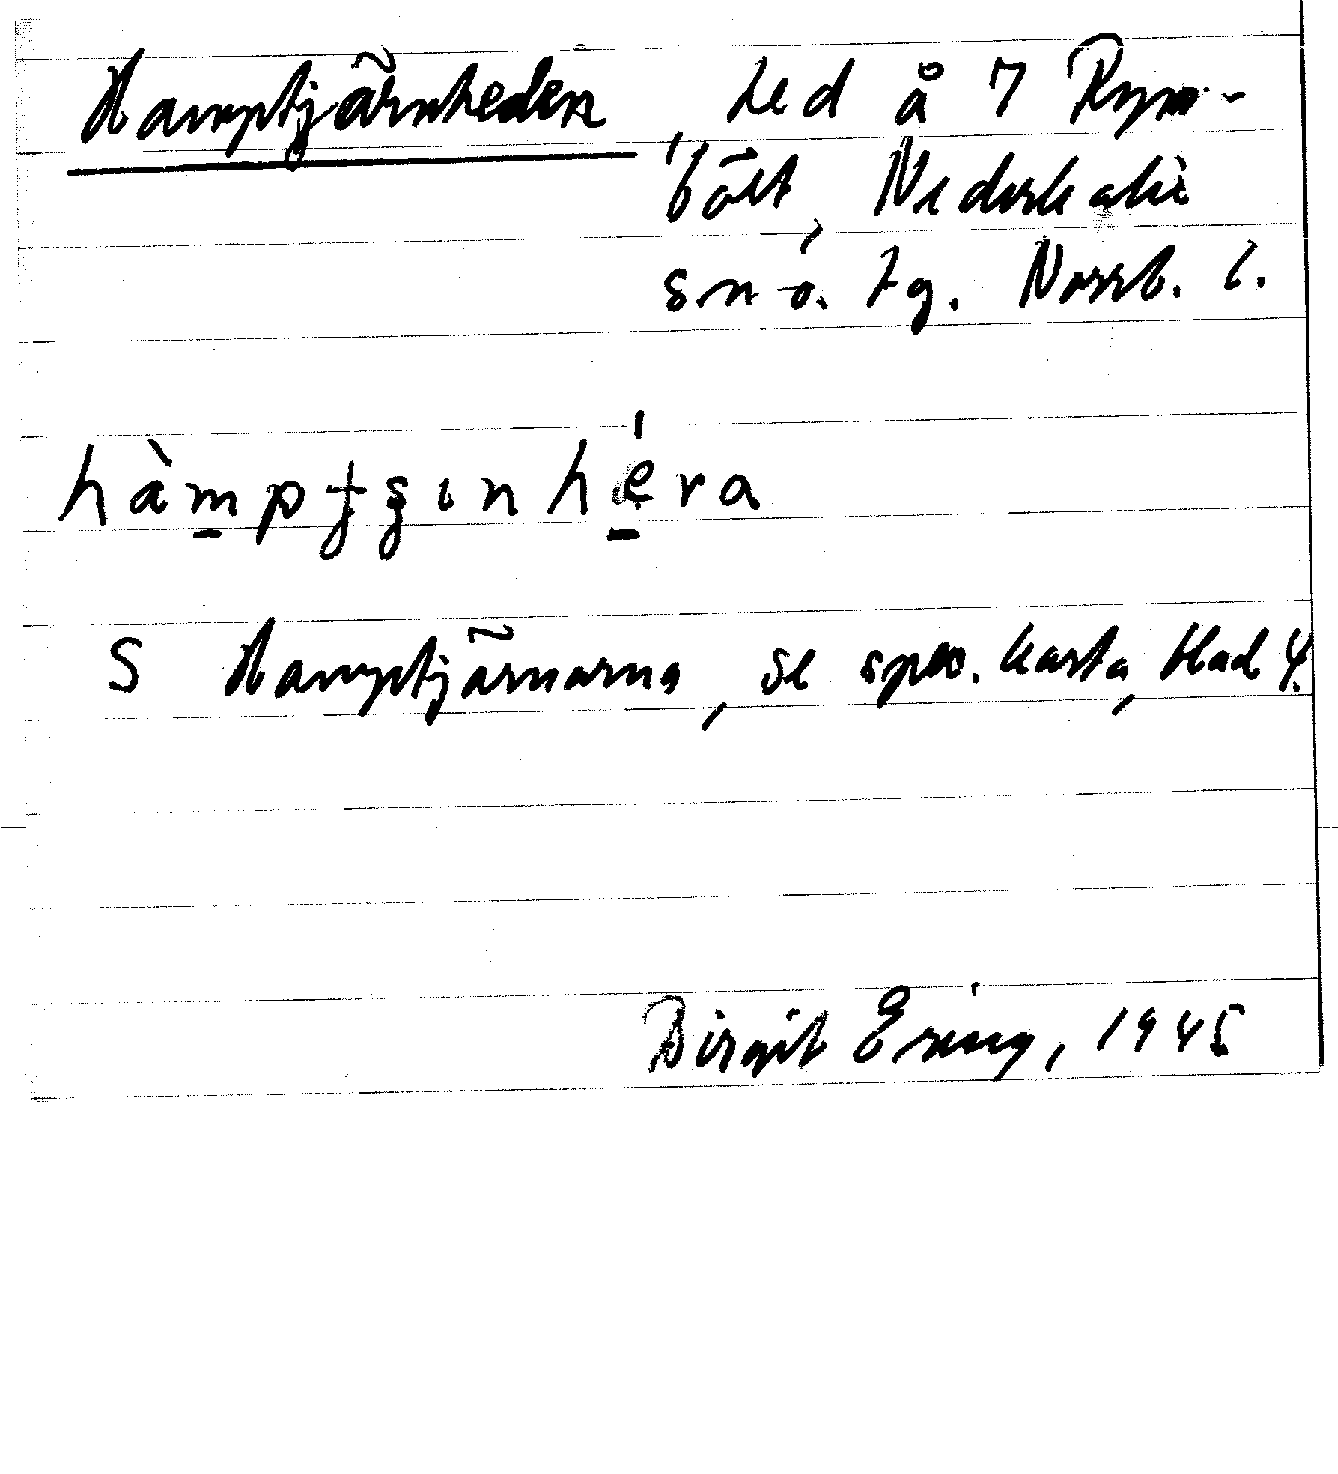 Hamptjärnheden, hed å 7 Rym-
bält, Nederkalix
sn o. tg. Norrb. l.
hàmpɟʂɩnhéra
S Hamptjärnarna, se spec. karta, blad 4.
Birgit Ering, 1945